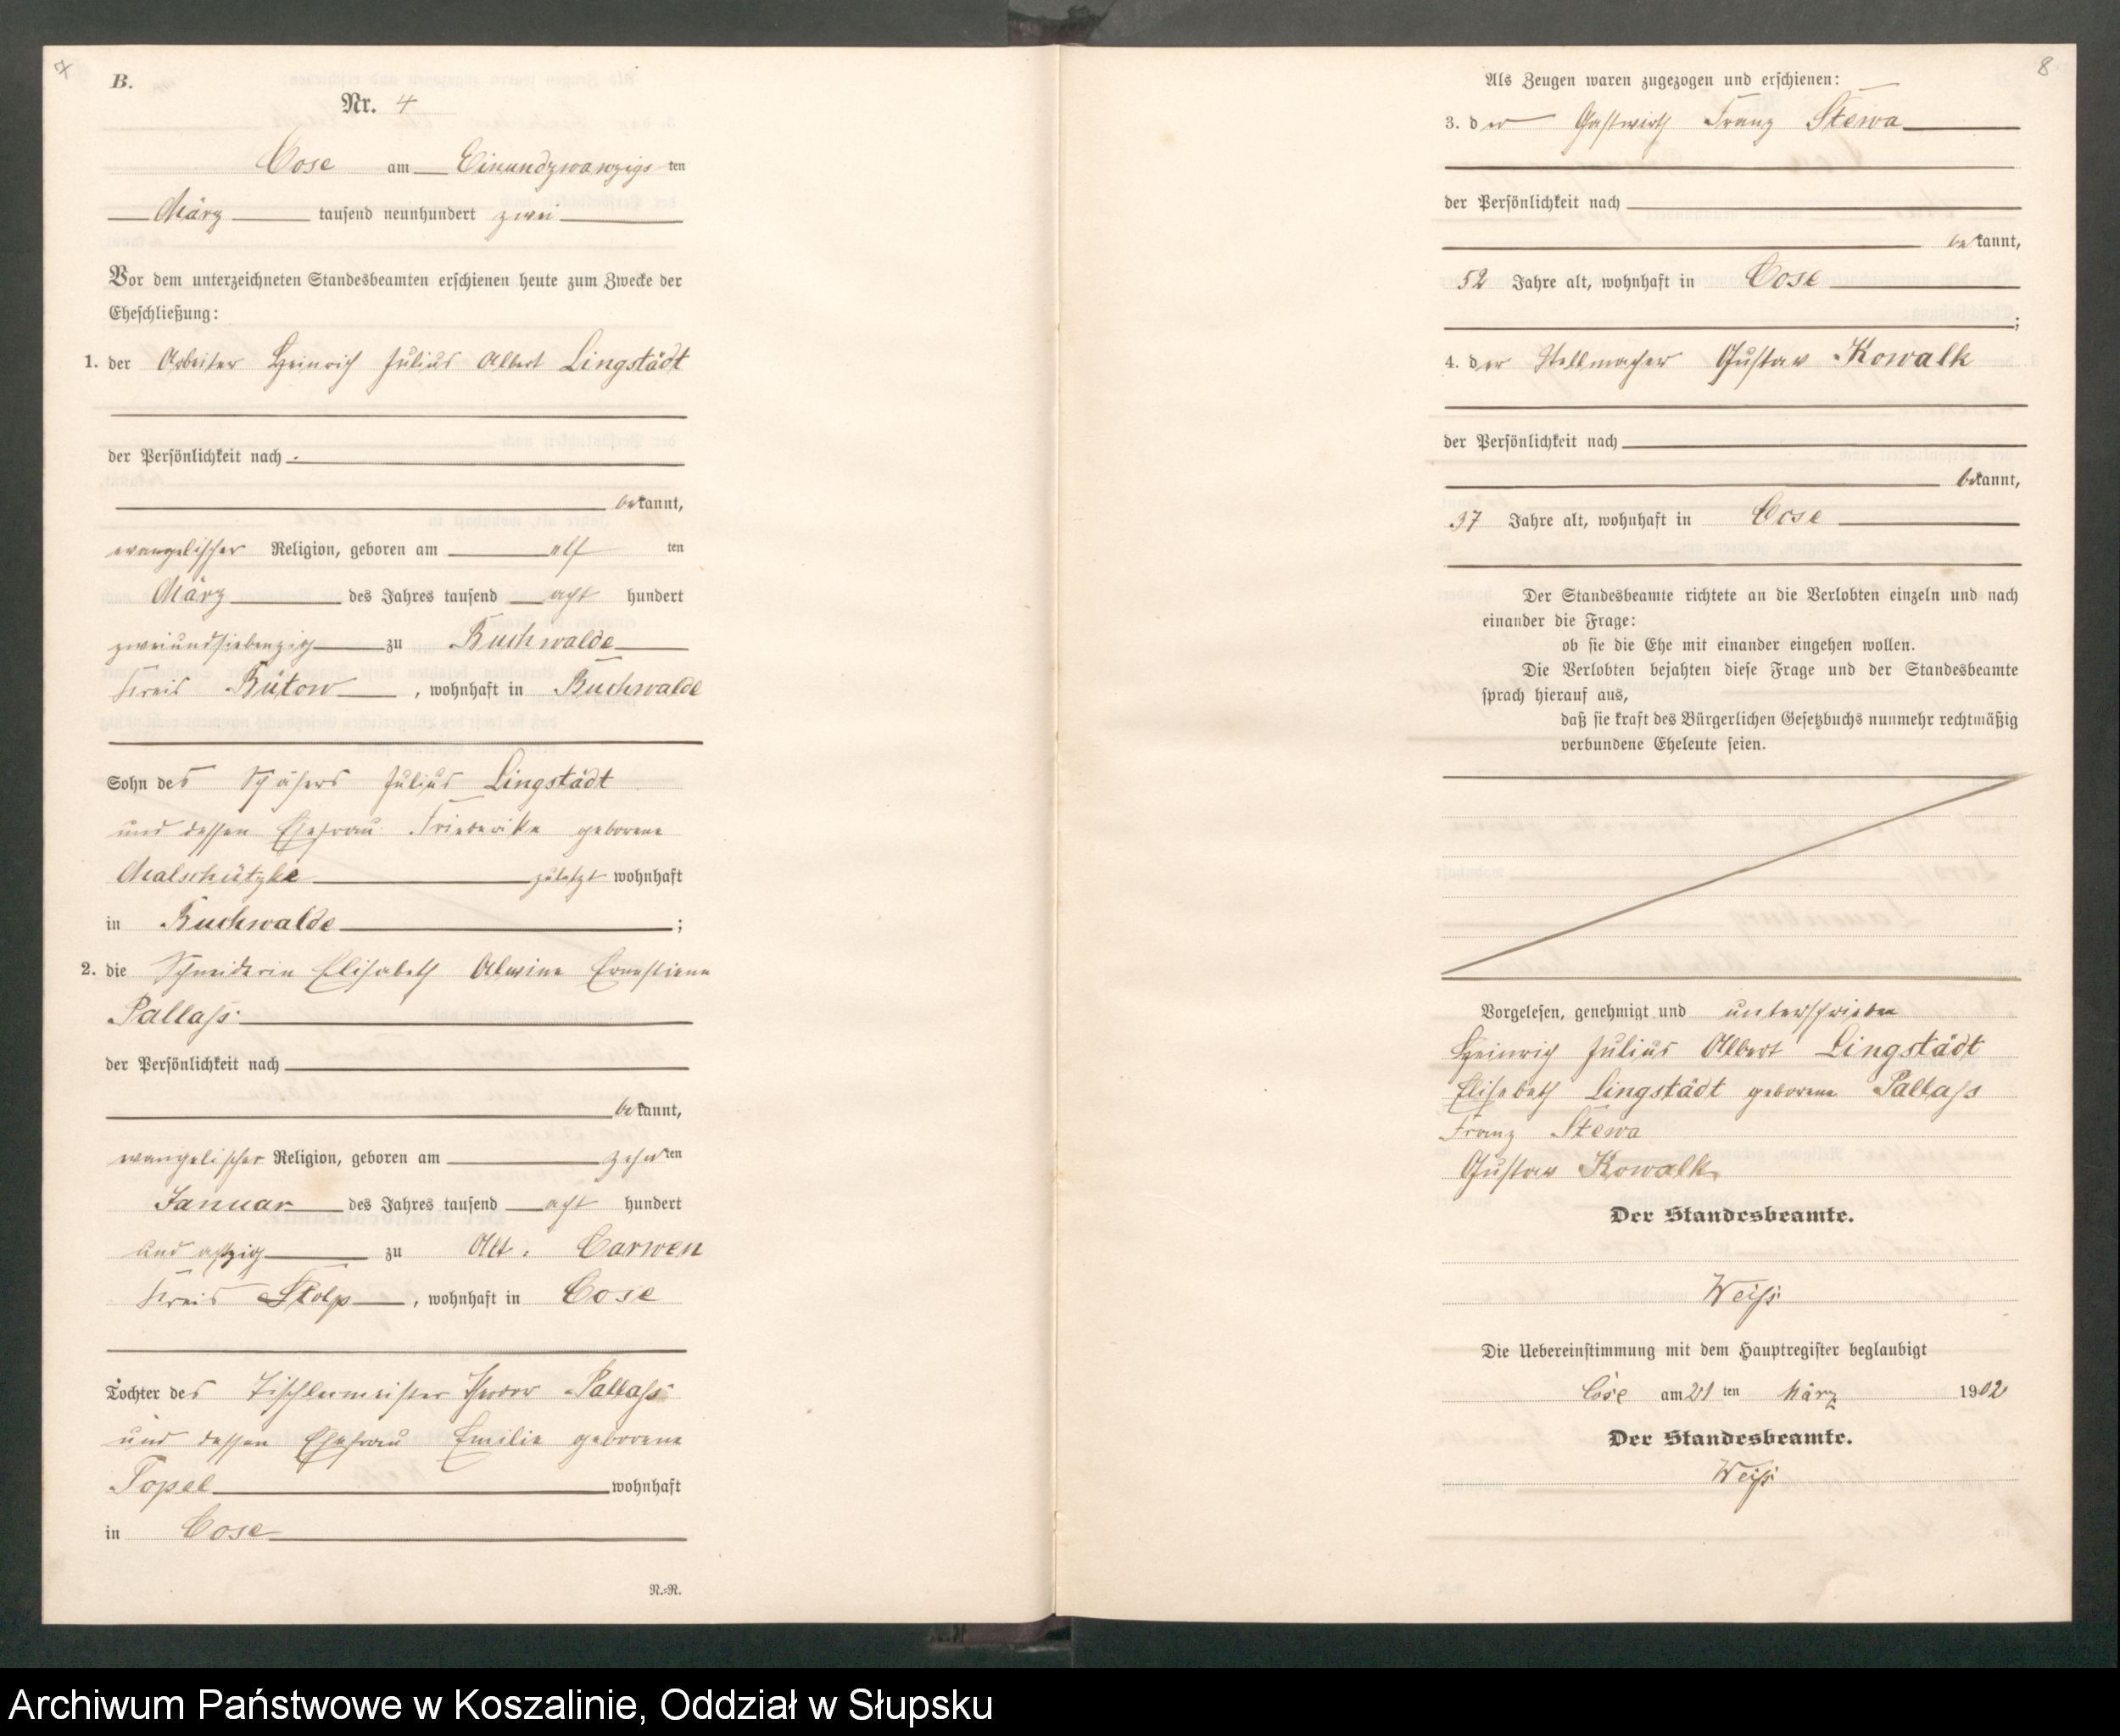 7
B.
Nr. 4
Cose am Einundzwanzigs ten
März tausend neunhundert zwei
Vor dem unterzeichneten Standesbeamten erschienen heute zum Zwecke der
Eheschließung:
1. der Arbeiter Heinrich Julius Albert Lingstädt
der Persönlichkeit nach
bekannt,
evangelischer Religion, geboren am elf ten
März des Jahres tausend acht hundert
zweiundsiebenzig zu Buchwalde
Kreis Bütow, wohnhaft in Buchwalde
Sohn des Schäfers Julius Lingstädt
und dessen Ehefrau Friederike geborene
Malschützke zuletzt wohnhaft
in Buchwalde;
2. die Schneiderin Elisabeth Alwine Ernestiene
Pallaß
der Persönlichkeit nach
bekannt,
evangelischer Religion, geboren am zehnten
Januar des Jahres tausend acht hundert
und achtzig zu Alt. Carwen
Kreis Stolp, wohnhaft in Cose
Tochter des Tischlermeister Pallaß
und dessen Ehefrau Emilie geborene
Topel wohnhaft
in Cose
N.-R.
8
Als Zeugen waren zugezogen und erschienen:
3. der Gastwirth Franz Stewa
der Persönlichkeit nach
bekannt,
52 Jahre alt, wohnhaft in Cose
;
4. der Stellmacher Gustav Kowalk
der Persönlichkeit nach
bekannt,
37 Jahre alt, wohnhaft in Cose
Der Standesbeamte richtete an die Verlobten einzeln und nach
einander die Frage:
ob sie die Ehe mit einander eingehen wollen.
Die Verlobten bejahten diese Frage und der Standesbeamte
sprach hierauf aus,
daß sie kraft des Bürgerlichen Gesetzbuchs nunmehr rechtmäßig
verbundene Eheleute seien.
Vorgelesen, genehmigt und unterschrieben
Heinrich Julius Albert Lingstädt
Elisabeth Lingstädt geborene Pallaß
Franz Stewa
Gustav Kowalk
Der Standesbeamte.
Weiß
Die Uebereinstimmung mit dem Hauptregister beglaubigt
Cose am 21 ten März 1902
Der Standesbeamte.
Weiß
Archiwum Państwowe w Koszalinie, Oddział w Słupsku